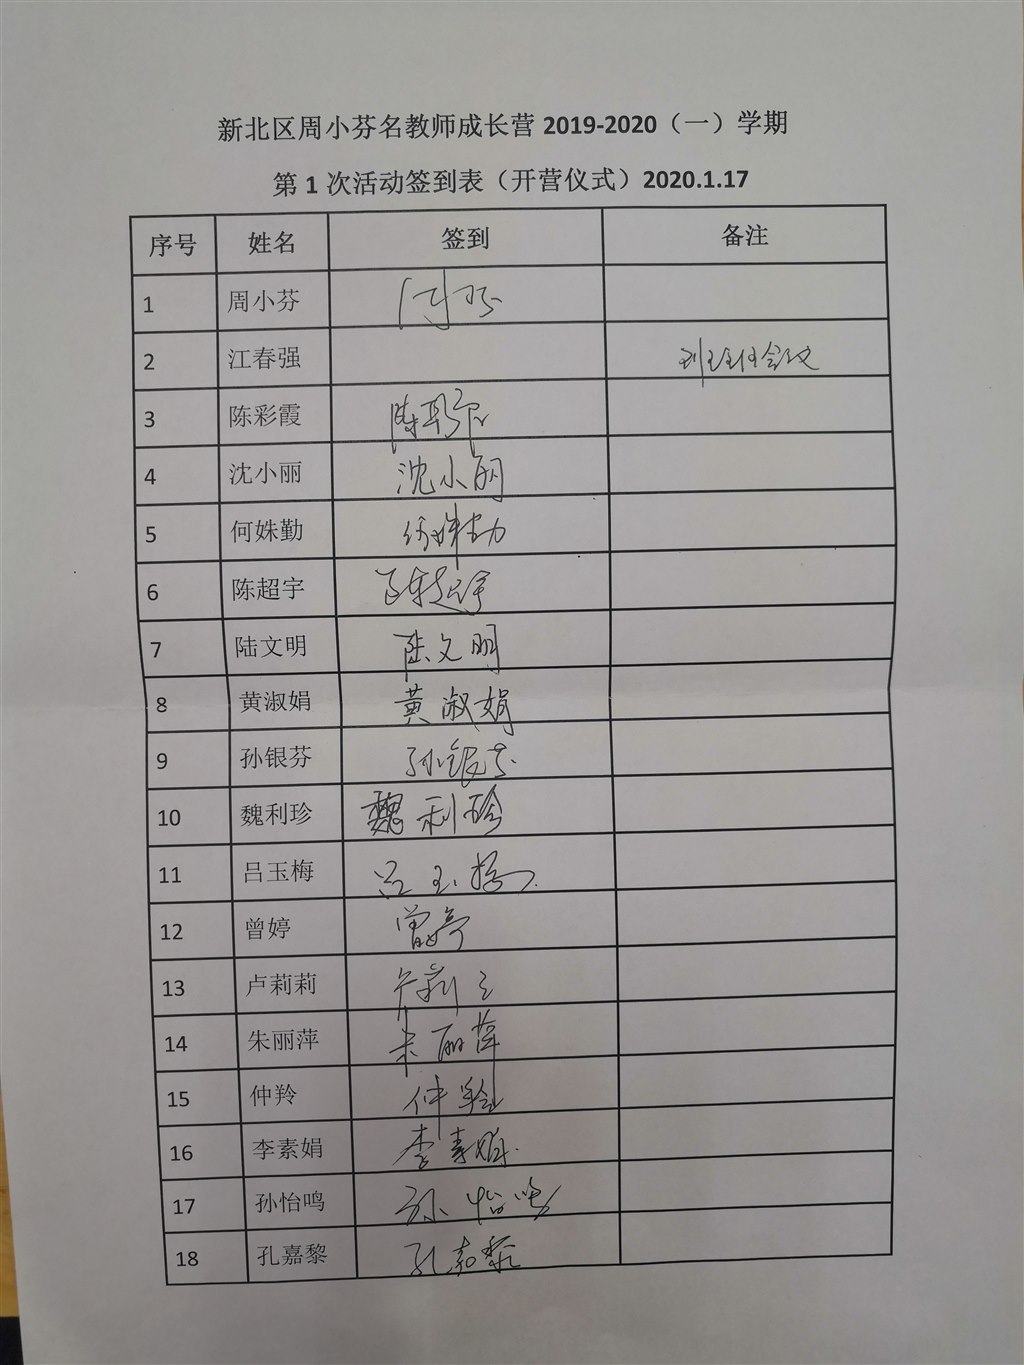 新北区周小芬名教师成长营 2019-2020（一）学期
第 1 次活动签到表（开营仪式）2020.1.17
序号 姓名 签到 备注
1 周小芬
2 江春强
3 陈彩霞 陈彩霞
4 沈小丽 沈小丽
5 何姝勤 何姝勤
6 陈超宇 陈超宇
7 陆文明 陆文明
8 黄淑娟 黄淑娟
9 孙银芬 孙银芬
10 魏利珍 魏利珍
11 吕玉梅 吕玉梅
12 曾婷 曾婷
13 卢莉莉 卢莉莉
14 朱丽萍 朱丽萍
15 仲羚 仲羚
16 李素娟 李素娟
17 孙怡鸣 孙怡鸣
18 孔嘉黎 孔嘉黎